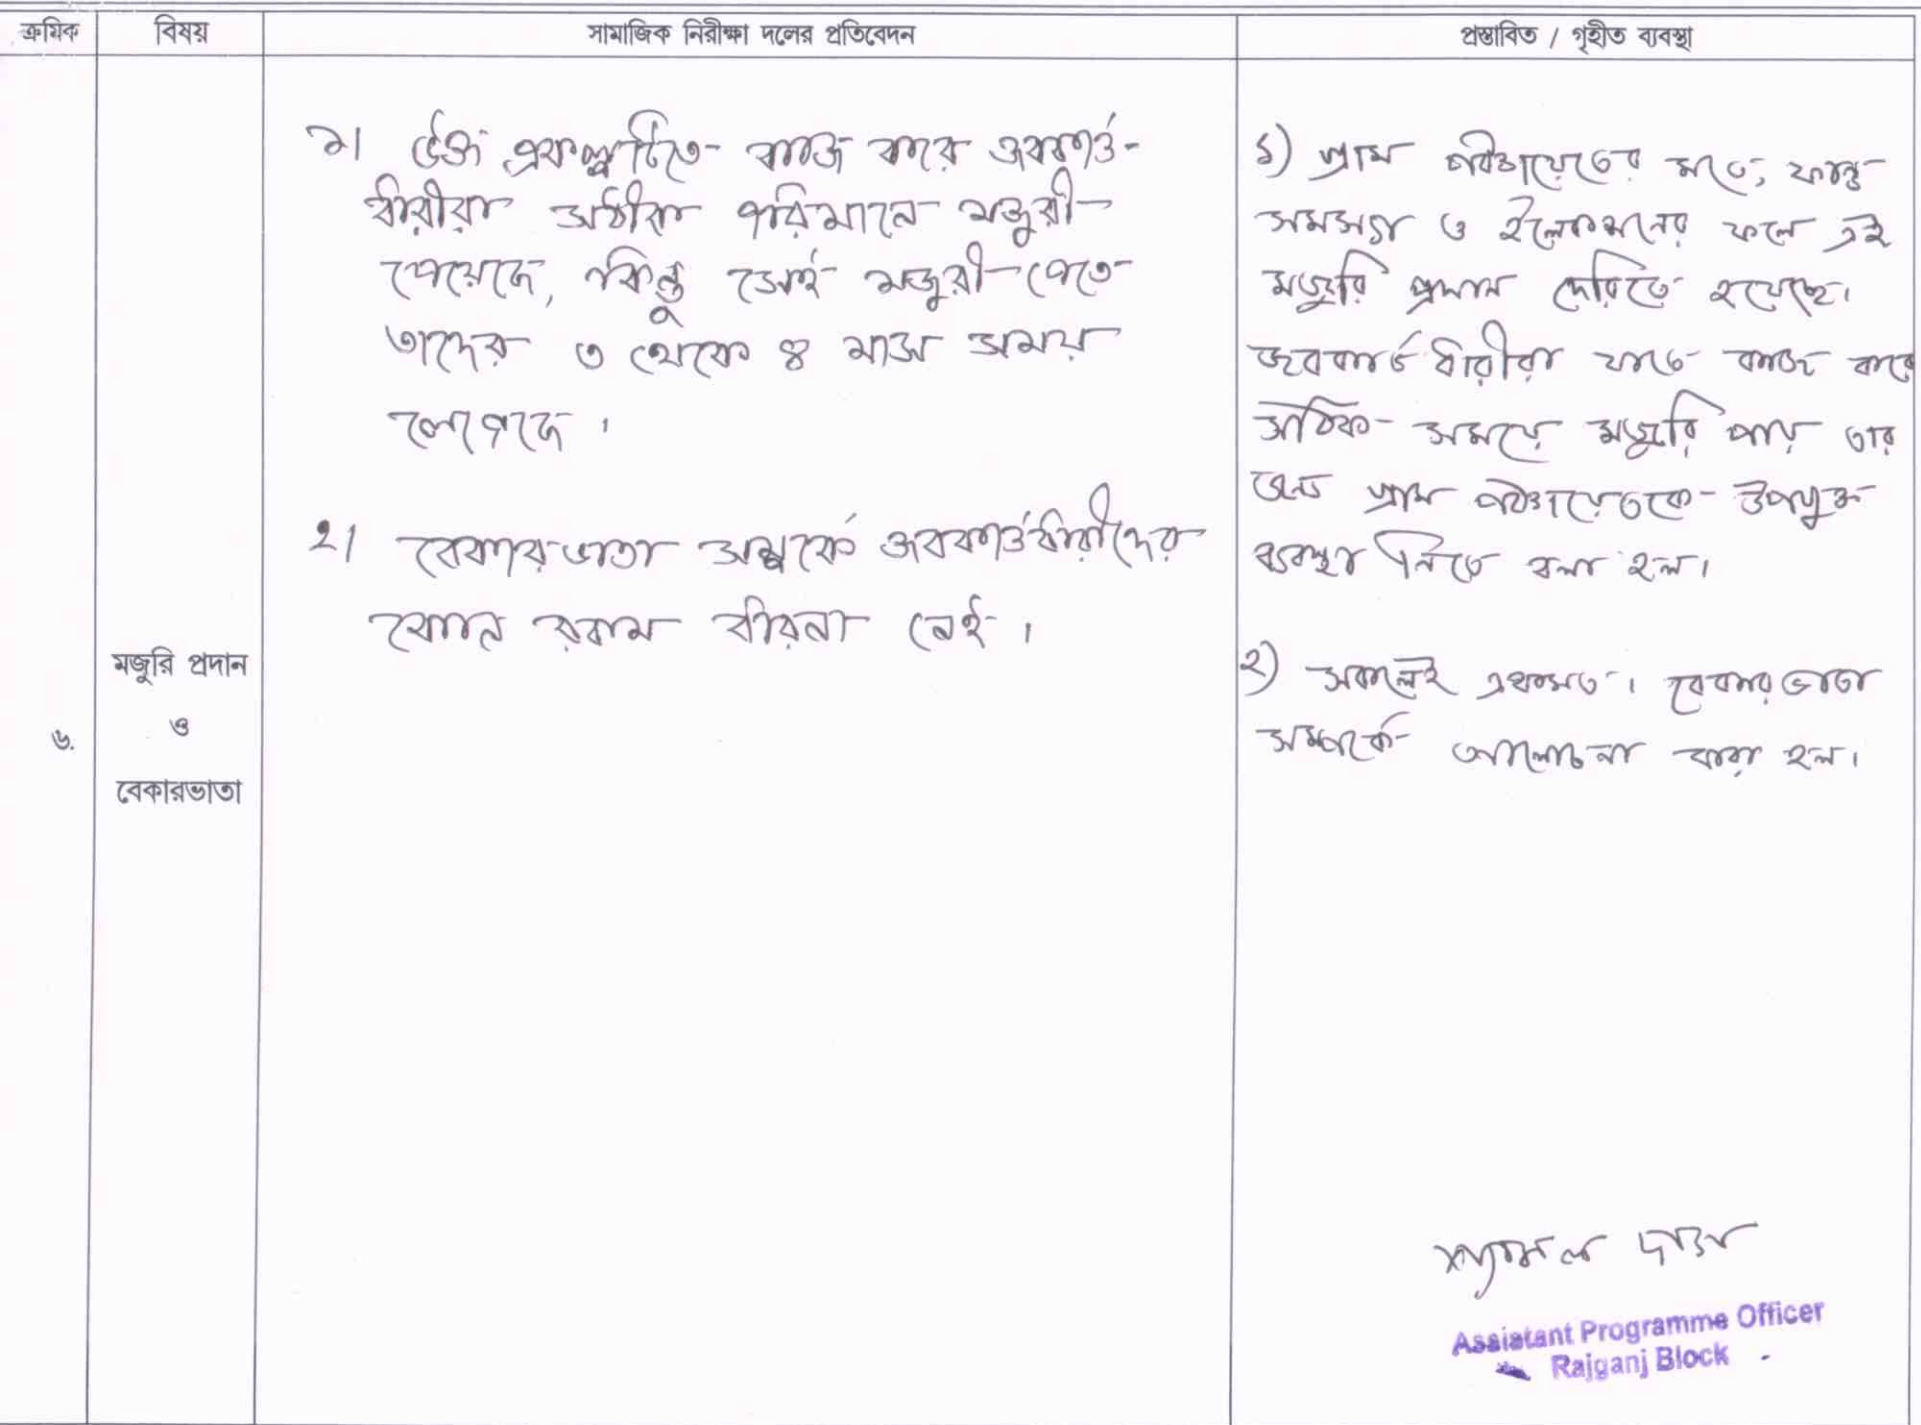 ক্রমিক
বিষয়
সামাজিক নিরীক্ষা দলের প্রতিবেদন
প্রস্তাবিত / গৃহীত ব্যবস্থা
৬.
মজুরি প্রদান
ও
বেকারভাতা
১। উক্ত প্রকল্পটিতে কাজ করে জবকার্ড-
ধারীরা সঠিক পরিমানে মজুরী
পেয়েছে, কিন্তু সেই মজুরী পেতে
তাদের ৩ থেকে ৪ মাস সময়
লেগেছে।
২। বেকারভাতা সম্পর্কে জবকার্ডধারীদের
কোন রকম ধারনা নেই।
১) গ্রাম পঞ্চায়েতের মতে, ফান্ড
সমস্যা ও ইলেকশনের ফলে এই
মজুরি প্রদান দেরিতে হয়েছে।
জবকার্ড ধারীরা যাতে কাজ করে
সঠিক সময়ে মজুরি পায় তার
জন্য গ্রাম পঞ্চায়েতকে উপযুক্ত
ব্যবস্থা নিতে বলা হল।
২) সকলেই একমত। বেকারভাতা
সম্পর্কে আলোচনা করা হল।
শ্যামল দাস
Assistant Programme Officer
Rajganj Block